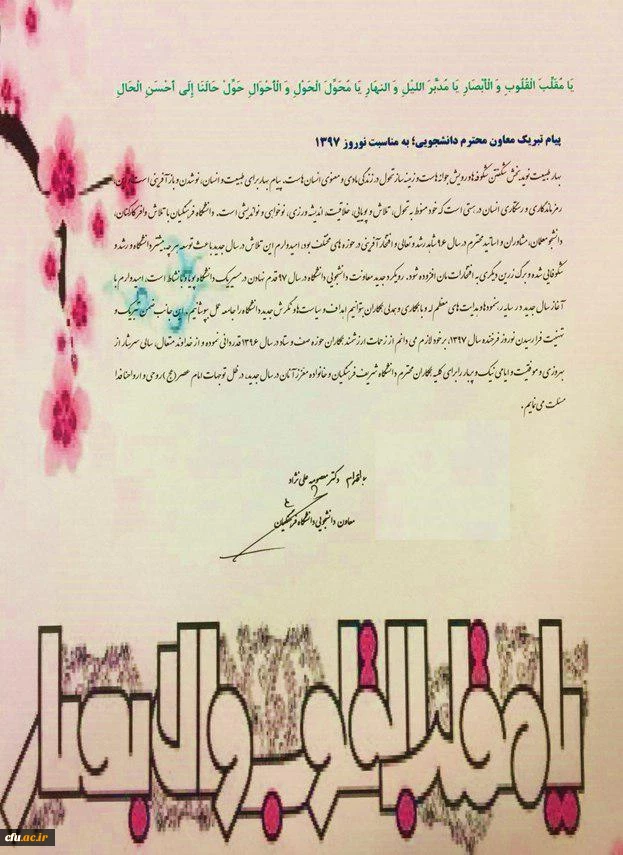 یَا مُقَلِّبَ الْقُلُوبِ وَ الْأَبْصَارِ یَا مُدَبِّرَ اللیْلِ وَ النهَارِ یَا مُحَوِّلَ الْحَوْلِ وَ الْأَحْوَالِ حَوِّلْ حَالَنَا إِلَى أَحْسَنِ الْحَالِ
پیام تبریک معاون محترم دانشجویی؛ به مناسبت نوروز ۱۳۹۷
بهار طبیعت نویدبخش شکفتن شکوفه‌ها و رویش جوانه‌هاست و زمینه ساز تحول در زندگی مادی و معنوی انسان هاست. پیام بهار برای طبیعت و انسان، نو شدن و باز آفرینی است و این،
رمز ماندگاری و رستگاری انسان در هستی است که خود منوط به تحول، تلاش و پویایی، خلاقیت، اندیشه ورزی، نوخواهی و نواندیشی است. دانشگاه فرهنگیان با تلاش وافر کارکنان،
دانشجو معلمان، مشاوران و اساتید محترم در سال ۹۶ شاهد رشد و تعالی و افتخار آفرینی در حوزه های مختلف بود، امیدوارم این تلاش در سال جدید باعث توسعه هر چه بیشتر دانشگاه و رشد و
شکوفایی شده و برگ زرین دیگری به افتخارات مان افزوده شود. رویکرد جدید معاونت دانشجویی دانشگاه در سال ۹۷ قدم نهادن در مسیر یک دانشگاه پویا و با نشاط است. امیدوارم با
آغاز سال جدید در سایه رهنمودها و هدایت های معظم له و با همکاری و همدلی همکاران بتوانیم اهداف و سیاست ها و نگرش جدید دانشگاه را جامه عمل بپوشانیم. این جانب ضمن تبریک و
تهنیت فرا رسیدن نوروز فرخنده سال ۱۳۹۷، بر خود لازم می دانم از زحمات ارزشمند همکاران حوزه صف و ستاد در سال ۱۳۹۶ قدردانی نموده و از خداوند متعال، سالی سرشار از
بهروزی و موفقیت و ایامی نیک و پربار را برای کلیه همکاران محترم دانشگاه شریف فرهنگیان و خانواده معزز آنان در سال جدید، در ظل توجهات امام عصر (عج) روحی و ارواحنا فدا
مسئلت می نمایم.
با احترام دکتر معصومه علی نژاد
معاون دانشجویی دانشگاه فرهنگیان
یا مقلب القلوب و الابصار
cfu.ac.ir